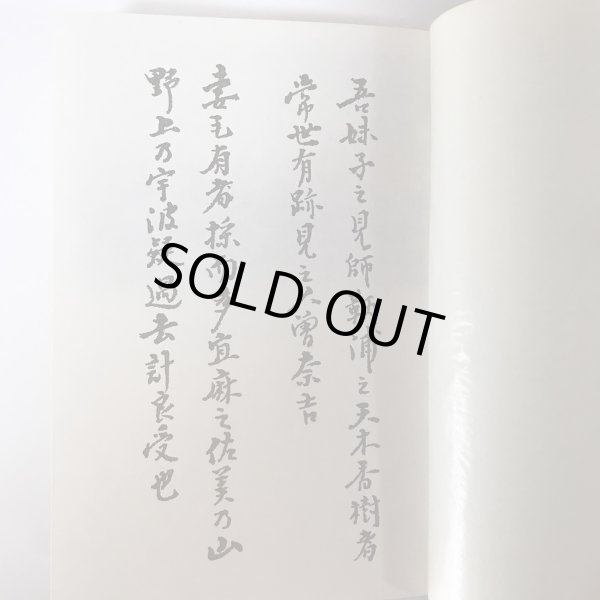 吾妹子之見師鞆浦之天木香樹者
常世有跡見之人曽奈吉
妻毛有者採而多宜麻之佐美乃山
野上乃宇波疑過去計良受也
SOLD OUT